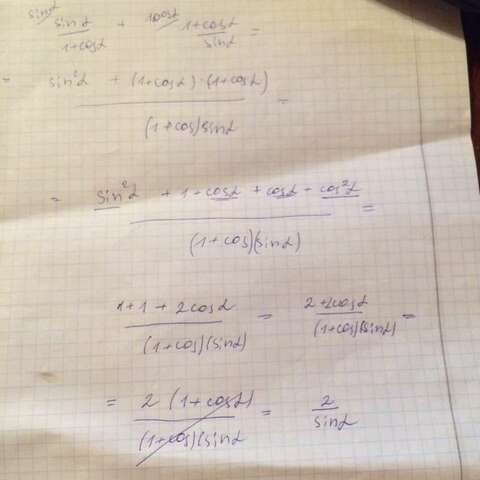 sinα cosα
sinα/(1+cosα) + (1+cosα)/sinα =
= (sin²α + (1+cosα)·(1+cosα))/((1+cos)sinα) =
= (sin²α + 1 + cosα + cosα + cos²α)/((1+cos)(sinα)) =
(1+1+2cosα)/((1+cos)(sinα) = (2+2cosα)/((1+cos)(sinα) =
= (2(1+cosα))/((1+cos)(sinα) = 2/sinα